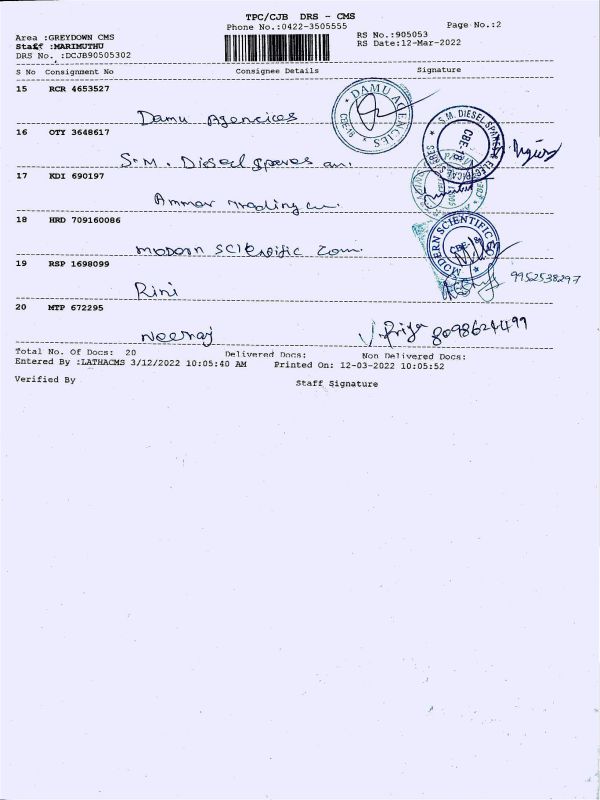 TPC/CJB DRS - CMS
Phone No.:0422-3505555
Page No.:2
Area :GREYDOWN CMS
RS No.:905053
Staff :MARIMUTHU
RS Date:12-Mar-2022
DRS No. :DCJB90505302
S No Consignment No Consignee Details Signature
15 RCR 4653527
Damu Agencies
* DAMU AGENCIES * CBE-18
16 OTY 3648617
S.M. Diesel Spares an.
S.M. DIESEL SPARES
17 KDI 690197
Ammar Trading
18 HRD 709160086
Modern Scientific Com.
MODERN SCIENTIFIC
19 RSP 1698099
Rini
9952538297
20 MTP 672295
Neeraj
Priya 8098624499
Total No. Of Docs: 20 Delivered Docs: Non Delivered Docs:
Entered By :LATHACMS 3/12/2022 10:05:40 AM Printed On: 12-03-2022 10:05:52
Verified By Staff Signature